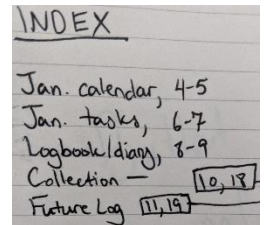 INDEX
Jan. calendar, 4-5
Jan. tasks, 6-7
Logbook/diary, 8-9
Collection — 10, 18
Future Log 11, 19